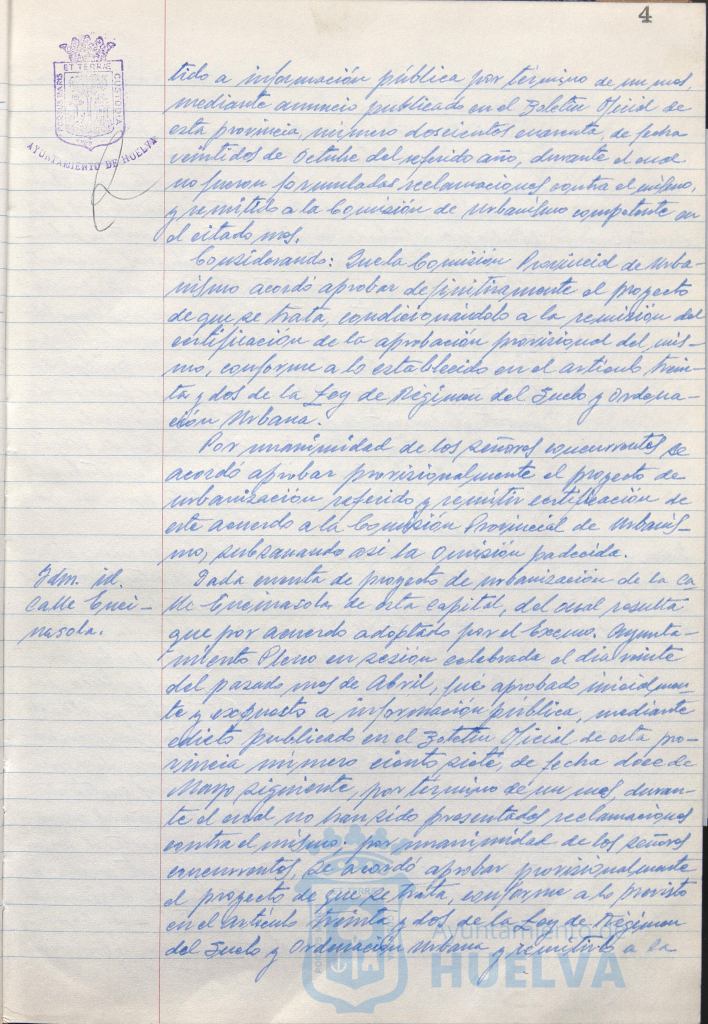 4
PORTUS MARIS
ET TERRÆ
CUSTODIA
AYUNTAMIENTO DE HUELVA
tido a información pública por término de un mes,
mediante anuncio publicado en el Boletín Oficial de
esta provincia, número doscientos cuarenta, de fecha
veintidos de Octubre del referido año, durante el cual
no fueron formuladas reclamaciones contra el mismo,
y remitido a la Comisión de Urbanismo competente en
el citado mes.
Considerando: Que la Comisión Provincial de Urba-
nismo acordó aprobar definitivamente el proyecto
de que se trata, condicionándolo a la remisión del
certificación de la aprobación provisional del mis-
mo, conforme a lo establecido en el artículo trein-
ta y dos de la Ley de Régimen del Suelo y Ordena-
ción Urbana.
Por unanimidad de los señores concurrentes se
acordó aprobar provisionalmente el proyecto de
urbanización referido y remitir certificación de
este acuerdo a la Comisión Provincial de Urbanis-
mo, subsanando así la omisión padecida.
Idm. id.
Calle Enci-
nasola.
Dada cuenta de proyecto de urbanización de la ca-
lle Encinasola, de esta capital, del cual resulta
que por acuerdo adoptado por el Excmo. Ayunta-
miento Pleno en sesión celebrada el dia veinte
del pasado mes de Abril, fué aprobado inicialmen-
te y expuesto a información pública, mediante
edicto publicado en el Boletín Oficial de esta pro-
vincia número ciento siete, de fecha doce de
Mayo siguiente, por término de un mes, duran-
te el cual no han sido presentadas reclamaciones
contra el mismo; por unanimidad de los señores
concurrentes, se acordó aprobar provisionalmente
el proyecto de que se trata, conforme a lo previsto
en el artículo treinta y dos de la Ley de Régimen
del Suelo y Ordenación Urbana y remitirlo a la
Ayuntamiento de
HUELVA